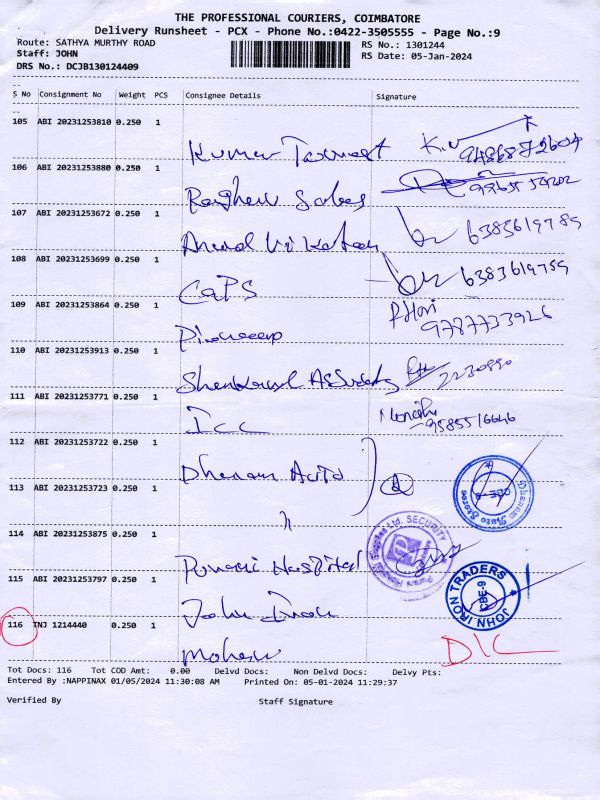 THE PROFESSIONAL COURIERS, COIMBATORE
Delivery Runsheet - PCX - Phone No.:0422-3505555 - Page No.:9
Route: SATHYA MURTHY ROAD
Staff: JOHN
DRS No.: DCJB130124409
RS No.: 1301244
RS Date: 05-Jan-2024
S No Consignment No Weight PCS Consignee Details Signature
105 ABI 20231253810 0.250 1
Kumar
106 ABI 20231253880 0.250 1
107 ABI 20231253672 0.250 1
6383619789
108 ABI 20231253699 0.250 1
CaPS 6383619789
109 ABI 20231253864 0.250 1
9787733926
110 ABI 20231253913 0.250 1
111 ABI 20231253771 0.250 1
Icc
112 ABI 20231253722 0.250 1
Dhanam Auto
113 ABI 20231253723 0.250 1
Dhanam Auto Stores
114 ABI 20231253875 0.250 1
Purani Hospital
Purani Hospital Supplies Ltd. SECURITY
115 ABI 20231253797 0.250 1
John Iron
JOHN IRON TRADERS
CBE-9
116 INJ 1214440 0.250 1
Mohan DLC
Tot Docs: 116 Tot COD Amt: 0.00 Delvd Docs: Non Delvd Docs: Delvy Pts:
Entered By :NAPPINAX 01/05/2024 11:30:08 AM Printed On: 05-01-2024 11:29:37
Verified By Staff Signature